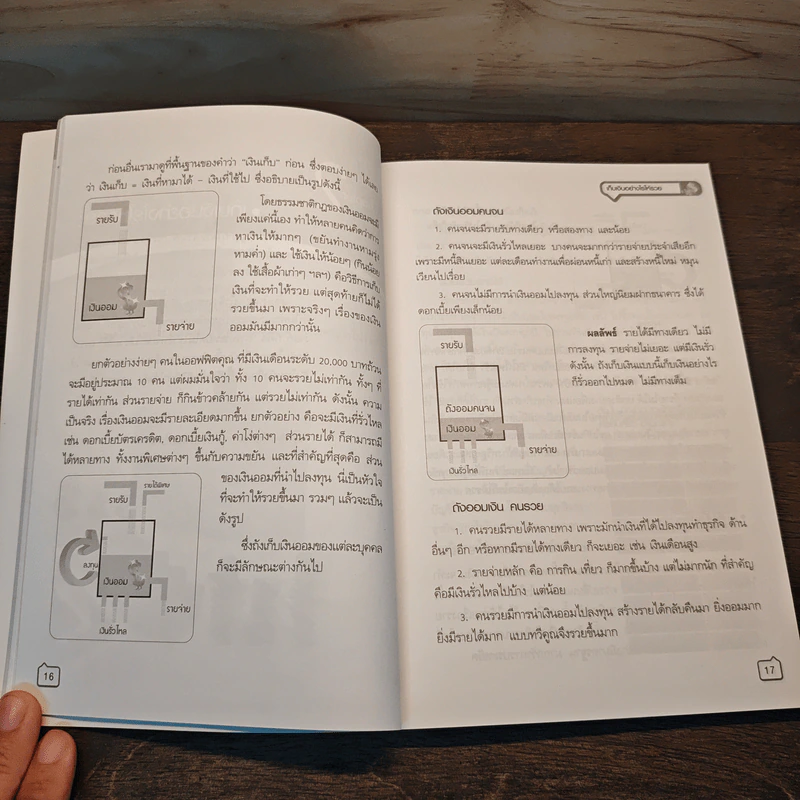 ก่อนอื่นเรามาดูที่พื้นฐานของคำว่า "เงินเก็บ" ก่อน ซึ่งตอบง่ายๆ ได้เลย
ว่า เงินเก็บ = เงินที่หามาได้ - เงินที่ใช้ไป ซึ่งอธิบายเป็นรูปดังนี้
รายรับ
เงินออม
รายจ่าย
โดยธรรมชาติกฎของเงินออมจะมี
เพียงแค่นี้เอง ทำให้หลายคนคิดว่าการ
หาเงินให้มากๆ (ขยันทำงานหามรุ่ง
หามค่ำ) และ ใช้เงินให้น้อยๆ (กินน้อย
ลง ใช้เสื้อผ้าเก่าๆ ฯลฯ) คือวิธีการเก็บ
เงินที่จะทำให้รวย แต่สุดท้ายก็ไม่ได้
รวยขึ้นมา เพราะจริงๆ เรื่องของเงิน
ออมมันมีมากกว่านั้น
ยกตัวอย่างง่ายๆ คนในออฟฟิตคุณ ที่มีเงินเดือนระดับ 20,000 บาทถ้วน
จะมีอยู่ประมาณ 10 คน แต่ผมมั่นใจว่า ทั้ง 10 คนจะรวยไม่เท่ากัน ทั้งๆ ที่
รายได้เท่ากัน ส่วนรายจ่าย ก็กินข้าวคล้ายกัน แต่รวยไม่เท่ากัน ดังนั้น ความ
เป็นจริง เรื่องเงินออมจะมีรายละเอียดมากขึ้น ยกตัวอย่าง คือจะมีเงินที่รั่วไหล
เช่น ดอกเบี้ยบัตรเครดิต, ดอกเบี้ยเงินกู้, ค่าโง่ต่างๆ ส่วนรายได้ ก็สามารถมี
ได้หลายทาง ทั้งงานพิเศษต่างๆ ขึ้นกับความขยัน และที่สำคัญที่สุดคือ ส่วน
ของเงินออมที่นำไปลงทุน นี่เป็นหัวใจ
ที่จะทำให้รวยขึ้นมา รวมๆ แล้วจะเป็น
ดังรูป
ซึ่งถังเก็บเงินออมของแต่ละบุคคล
ก็จะมีลักษณะต่างกันไป
รายรับ
รายได้พิเศษ
ลงทุน
เงินออม
รายจ่าย
เงินรั่วไหล
16
เก็บเงินอย่างไรให้รวย
ถังเงินออมคนจน
1. คนจนจะมีรายรับทางเดียว หรือสองทาง และน้อย
2. คนจนจะมีเงินรั่วไหลเยอะ บางคนจะมากกว่ารายจ่ายประจำเสียอีก
เพราะมีหนี้สินเยอะ แต่ละเดือนทำงานเพื่อผ่อนหนี้เก่า และสร้างหนี้ใหม่ หมุน
เวียนไปเรื่อย
3. คนจนไม่มีการนำเงินออมไปลงทุน ส่วนใหญ่นิยมฝากธนาคาร ซึ่งได้
ดอกเบี้ยเพียงเล็กน้อย
รายรับ
ถังออมคนจน
เงินออม
รายจ่าย
เงินรั่วไหล
ผลลัพธ์ รายได้มีทางเดียว ไม่มี
การลงทุน รายจ่ายไม่เยอะ แต่มีเงินรั่ว
ดังนั้น ถังเก็บเงินแบบนี้เก็บเงินอย่างไร
ก็รั่วออกไปหมด ไม่มีทางเต็ม
ถังออมเงิน คนรวย
1. คนรวยมีรายได้หลายทาง เพราะมักนำเงินที่ได้ไปลงทุนทำธุรกิจ ด้าน
อื่นๆ อีก หรือหากมีรายได้ทางเดียว ก็จะเยอะ เช่น เงินเดือนสูง
2. รายจ่ายหลัก คือ การกิน เที่ยว ก็มากขึ้นบ้าง แต่ไม่มากนัก ที่สำคัญ
คือมีเงินรั่วไหลไปบ้าง แต่น้อย
3. คนรวยมีการนำเงินออมไปลงทุน สร้างรายได้กลับคืนมา ยิ่งออมมาก
ยิ่งมีรายได้มาก แบบทวีคูณจึงรวยขึ้นมาก
17